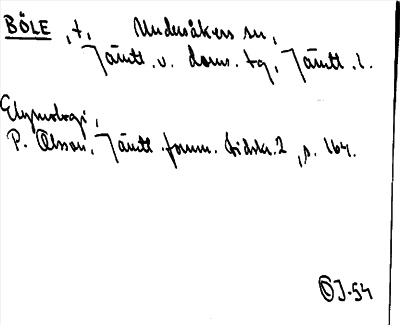 BÖLE, t, Undersåkers sn,
Jämtl. v. doms. tg, Jämtl. l.
Etymologi,
P. Olsson, Jämtl. fornm. tidskr. 2, s. 164.
© J-54